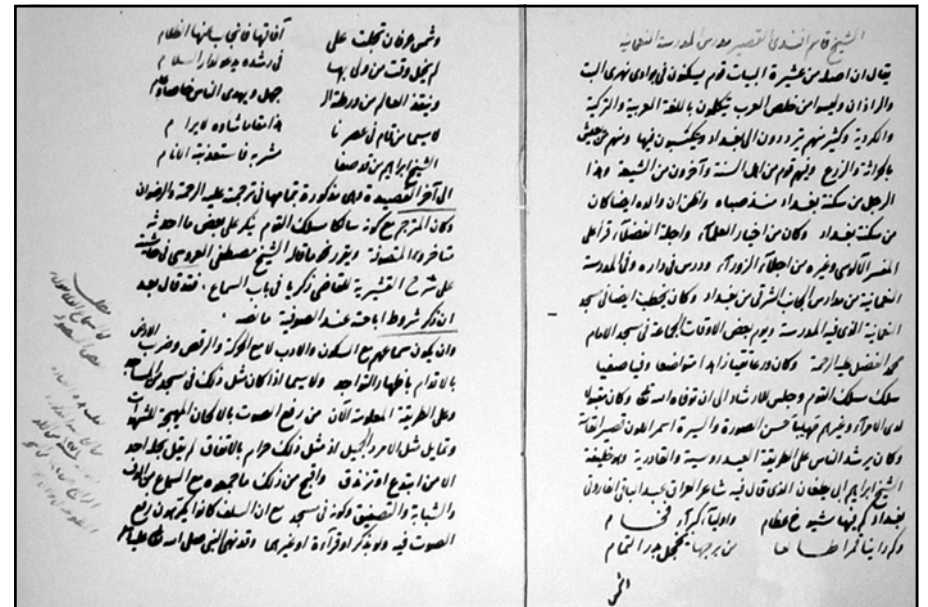 الشيخ قاسم افندي القصير مدرس المدرسة النعمانية
يقال ان اصله من عشيرة البيات قوم يسكنون في بوادي نهري البت
والراذان وليسوا من خلص العرب يتكلمون باللغة العربية والتركية
والكردية وكثير منهم يترددون الى بغداد ويتكسبون فيها ومنهم من يعيش
بالحراثة والزرع وفيهم قوم من اهل السنة وآخرون من الشيعة وهذا
الرجل من سكنة بغداد منذ صباه واظن ان والده ايضا كان
من سكنة بغداد وكان من اخيار العلمآء واجلة الفضلآء قرأ على
المفسر الآلوسي وغيره من اجلاء الزورآء ودرس في داره وفي المدرسة
النعمانية من مدارس الجانب الشرقي من بغداد وكان يخطب ايضا في مسجد
النعمانية الذي فيه المدرسة ويؤم بعض الاوقات الجماعة في مسجد الامام
محمد الفضل عليه الرحمة وكان ورعا تقيا زاهدا متواضعا وفيا صفيا
سلك سلك القوم وجلس للارشاد الى ان توفاه الله وكان مقبولا
لدى الامرآء وغيرهم مهيبا حسن الصورة والسيرة اسمر اللون قصير القامة
وكان يرشد الناس على الطريقة العيدروسية والقادرية وهو خليفة
الشيخ ابراهيم الذي قال فيه شاعر العراق عبد الباقي الفاروقي
بغداد كم فيها شيوخ عظام واوليآء كبرآء فخام
وكم رأينا قمرا طالعا من برجها يخجل بدر التمام
وشمس عرفان تجلت على آفاقها فانجاب منها الظلام
لم يخل وقت من ولي بها في رشده يدعو لدار السلام
وينقذ العالم من ورطة الـ جهل ويهدي الناس
لا سيما من قام في عصرنا هذا مقاما شاده لا يرام
الشيخ ابراهيم من قد صفا مشربه فاستعذبته الانام
الى آخر القصيدة وهي مذكورة بتمامها في ترجمته عليه الرحمة والرضوان
وكان المترجم مع كونه سالكا سلك القوم ينكر على بعض ما احدثه
متأخرو المتصوفة ويقرر نحو ما قاله الشيخ مصطفى العروسي في حاشيته
على شرح القشيرية للقاضي زكريا في باب السماع . فقد قال بعد
ان ذكر شروط اباحته عند الصوفية ما نصه
وان يكون سماعهم مع السكون والادب لا مع الحركة والرقص وضرب الارض
بالاقدام باظهار التواجد ولا سيما اذا كان مثل ذلك في مسجد من المساجد
وعلى الطريقة المعلومة الآن من رفع الصوت بالالحان المهيجة للشهوات
وتمايل مثل الامرد الجميل اذ مثل ذلك حرام بالاتفاق لم يقل بحله احد
الا من ابتدع او تزندق واقبح من ذلك ما جمعوه مع السماع من الدف
والشبابة والتصفيق وكونه في مسجد مع ان السلف كانوا يكرهون رفع
الصوت فيه ولو بذكر او قرآءة او غيرهما وقد نهى النبي صلى الله